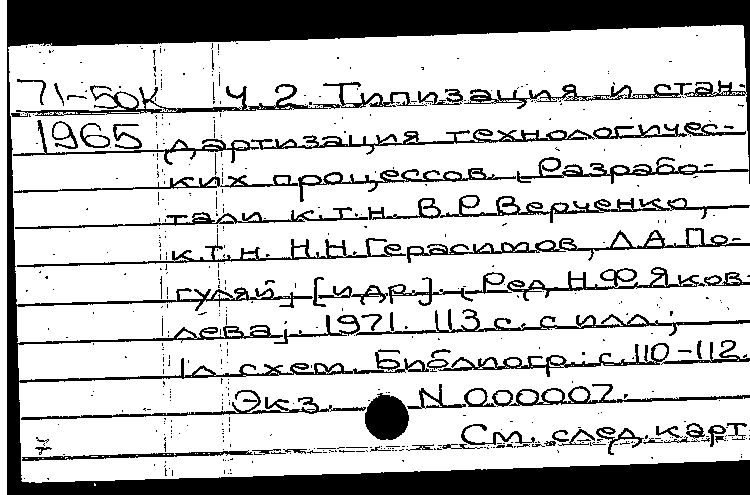 71-50К Ч.2 Типизация и стан-
1965 дартизация технологичес-
ких процессов. [Разрабо-
тали к.т.н. В.Р.Верченко,
к.т.н. Н.Н.Герасимов, Л.А.По-
гуляй] [и др.]. [Ред. Н.Ф.Яков-
лева]. 1971. 113 с. с илл.;
1л. схем. Библиогр.: с.110-112.
Экз. N 000007.
7 См. след. карт